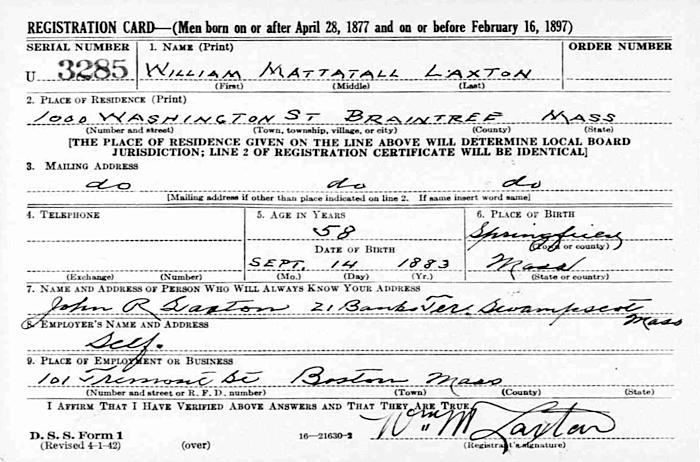 REGISTRATION CARD—(Men born on or after April 28, 1877 and on or before February 16, 1897)
SERIAL NUMBER 1. NAME (Print) ORDER NUMBER
U 3285 WILLIAM MATTATALL LAXTON
(First) (Middle) (Last)
2. PLACE OF RESIDENCE (Print)
1000 WASHINGTON ST BRAINTREE MASS
(Number and street) (Town, township, village, or city) (County) (State)
[THE PLACE OF RESIDENCE GIVEN ON THE LINE ABOVE WILL DETERMINE LOCAL BOARD
JURISDICTION; LINE 2 OF REGISTRATION CERTIFICATE WILL BE IDENTICAL]
3. MAILING ADDRESS
do do do
[Mailing address if other than place indicated on line 2. If same insert word same]
4. TELEPHONE 5. AGE IN YEARS 6. PLACE OF BIRTH
58 Springfield
DATE OF BIRTH (Town or county)
SEPT. 14 1883 Mass
(Exchange) (Number) (Mo.) (Day) (Yr.) (State or country)
7. NAME AND ADDRESS OF PERSON WHO WILL ALWAYS KNOW YOUR ADDRESS
John R Laxton 21 Banks Ter. Swampscot Mass
8. EMPLOYER'S NAME AND ADDRESS
Self.
9. PLACE OF EMPLOYMENT OR BUSINESS
101 Tremont St Boston Mass
(Number and street or R. F. D. number) (Town) (County) (State)
I AFFIRM THAT I HAVE VERIFIED ABOVE ANSWERS AND THAT THEY ARE TRUE.
D. S. S. Form 1 Wm M Laxton
(Revised 4-1-42) (over) 16—21630-2 (Registrant's signature)